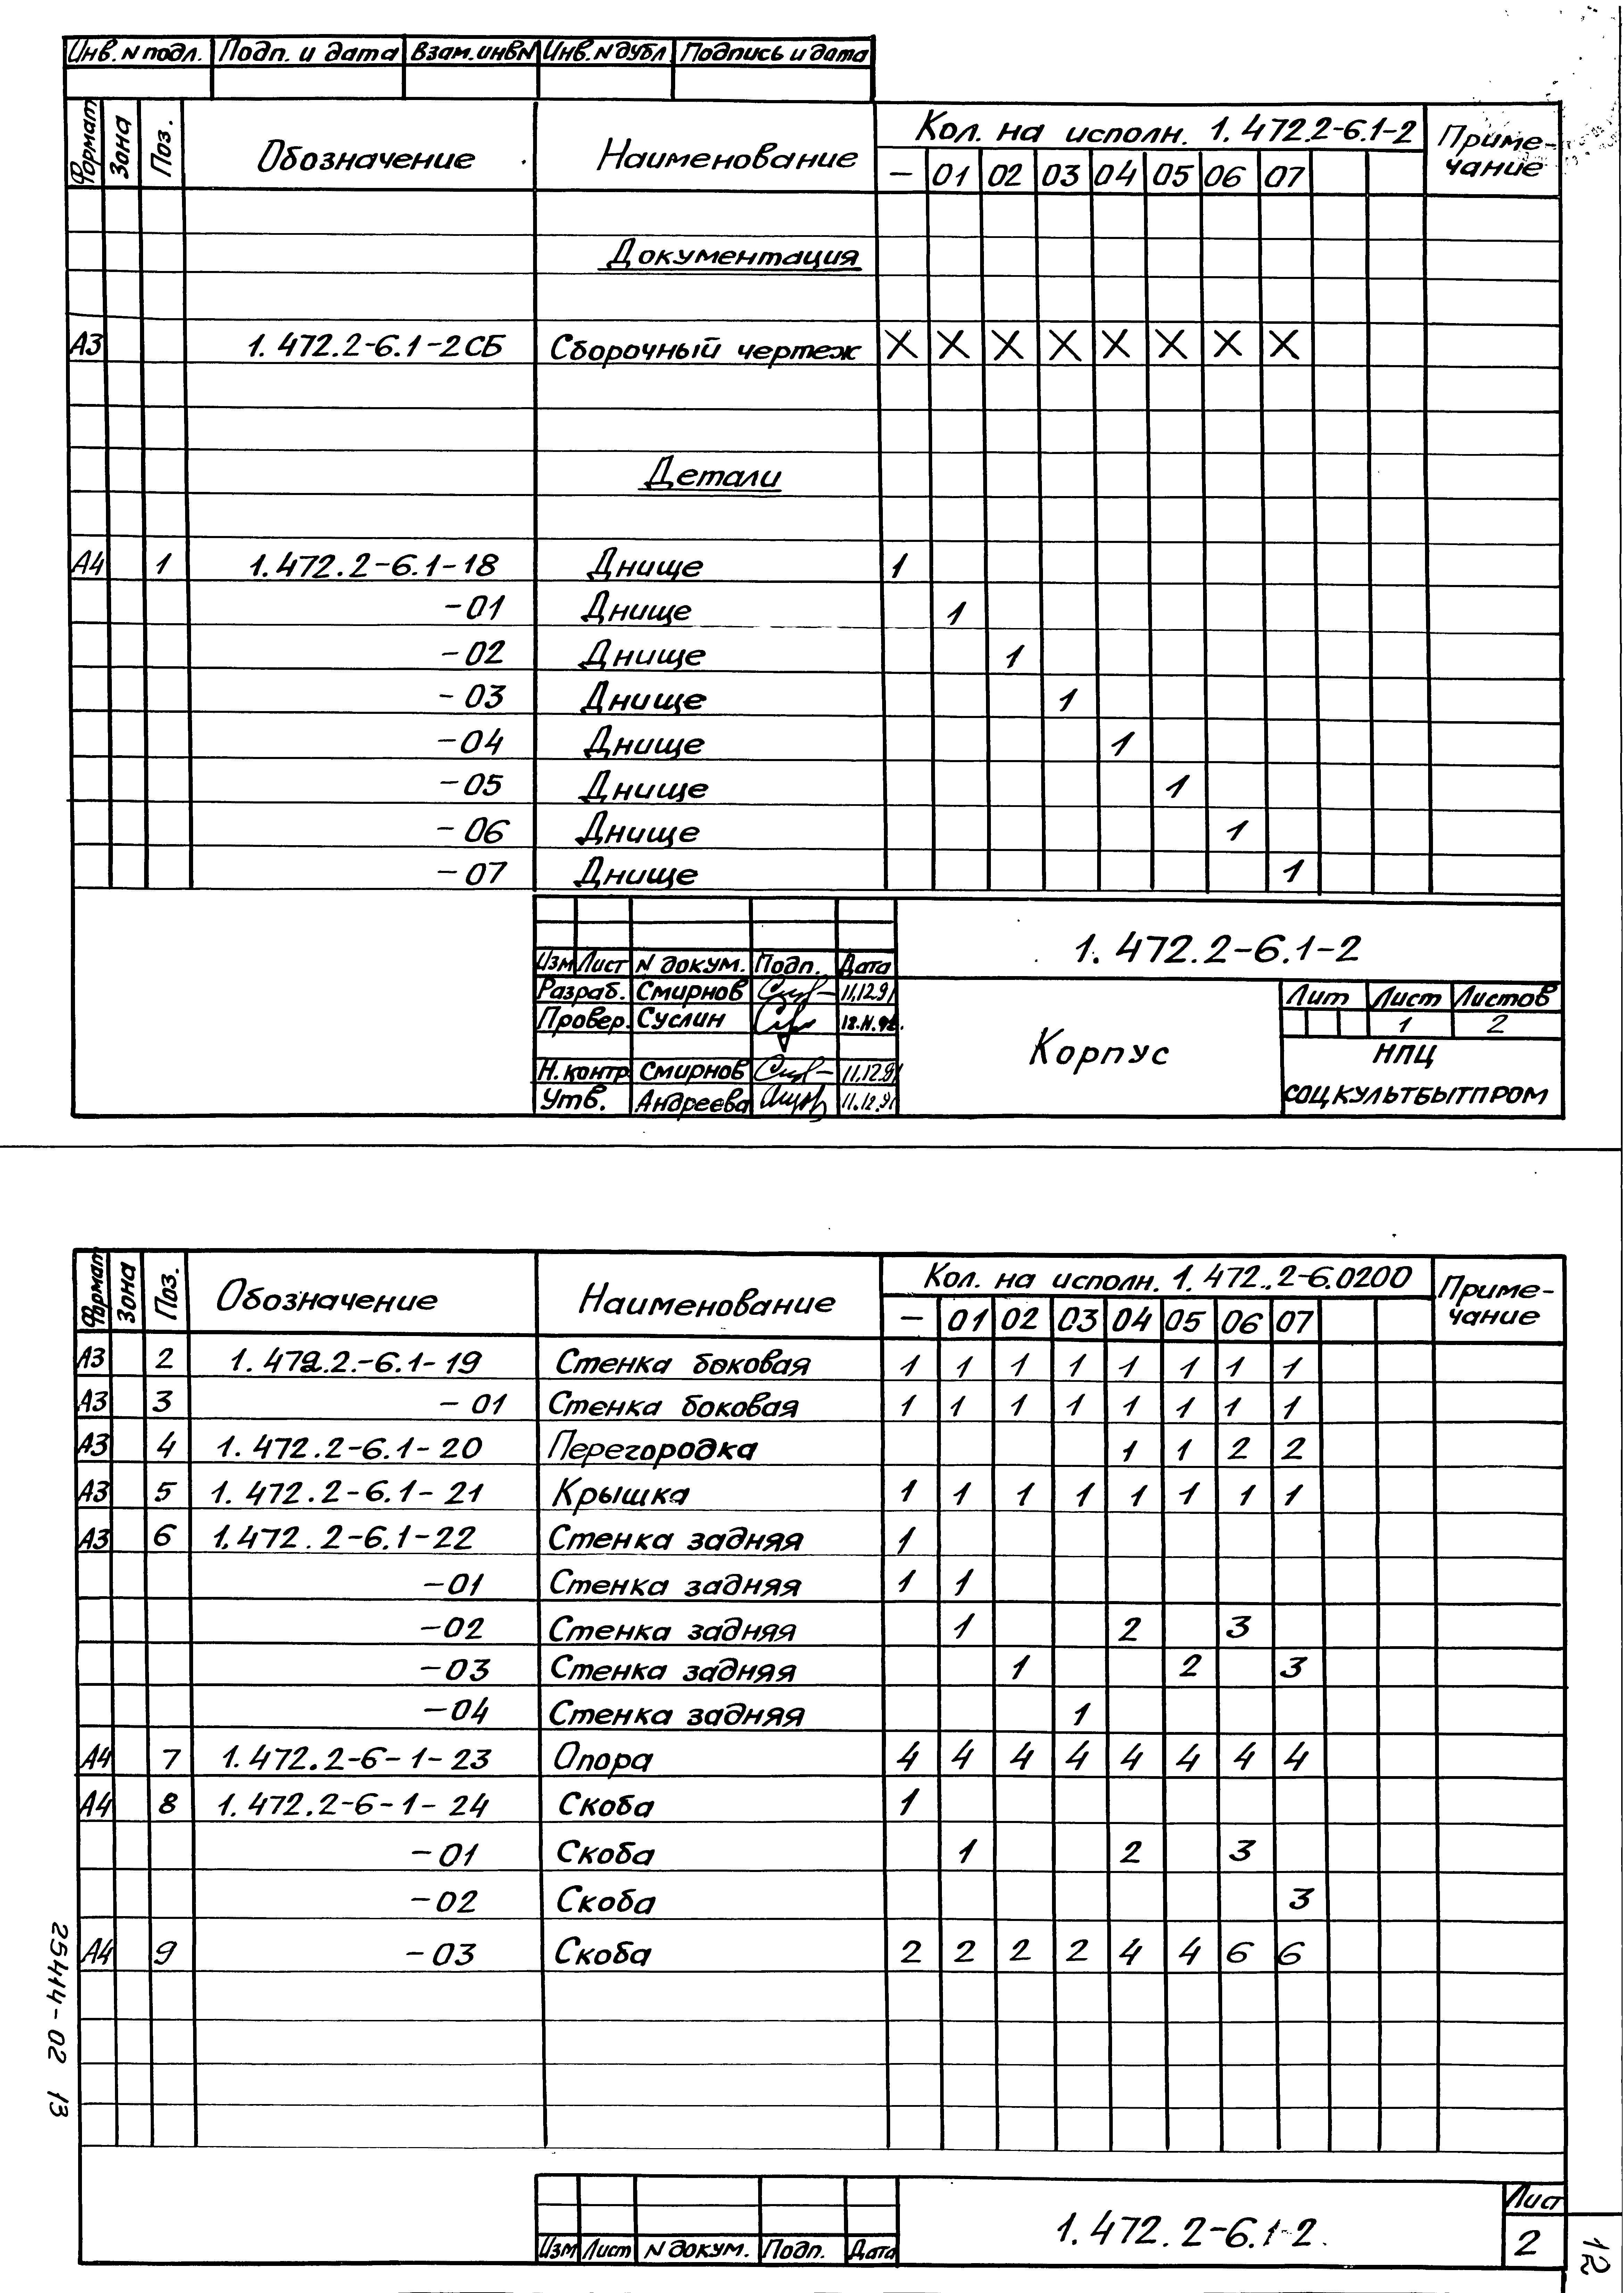 Инв. N подл. Подп. и дата Взам. инв N Инв. N дубл Подпись и дата
Формат Зона Поз. Обозначение Наименование Кол. на исполн. 1. 472.2-6.1-2 Приме-
чание
– 01 02 03 04 05 06 07
Документация
А3 1. 472.2-6.1-2СБ Сборочный чертеж X X X X X X X X
Детали
А4 1 1.472.2-6.1-18 Днище 1
-01 Днище 1
-02 Днище 1
-03 Днище 1
-04 Днище 1
-05 Днище 1
-06 Днище 1
-07 Днище 1
1. 472.2-6.1-2
Изм Лист N докум. Подп. Дата
Разраб. Смирнов 11.12.91
Провер. Суслин
Н. контр Смирнов 11.12.91
Утв. Андреева 11.12.91
Корпус
Лит Лист Листов
1 2
НПЦ
СОЦКУЛЬТБЫТПРОМ
Формат Зона Поз. Обозначение Наименование Кол. на исполн. 1. 472.. 2-6.0200 Приме-
чание
– 01 02 03 04 05 06 07
А3 2 1. 472.2.-6.1-19 Стенка боковая 1 1 1 1 1 1 1 1
А3 3 - 01 Стенка боковая 1 1 1 1 1 1 1 1
А3 4 1. 472.2-6.1-20 Перегородка 1 1 2 2
А3 5 1. 472.2-6.1-21 Крышка 1 1 1 1 1 1 1 1
А3 6 1.472. 2-6.1-22 Стенка задняя 1
-01 Стенка задняя 1 1
-02 Стенка задняя 1 2 3
-03 Стенка задняя 1 2 3
-04 Стенка задняя 1
А4 7 1.472.2-6-1-23 Опора 4 4 4 4 4 4 4 4
А4 8 1.472.2-6-1-24 Скоба 1
-01 Скоба 1 2 3
-02 Скоба 3
А4 9 -03 Скоба 2 2 2 2 4 4 6 6
25414-02 13
Изм Лист N докум. Подп. Дата
1.472.2-6.1-2.
Лист
2
12